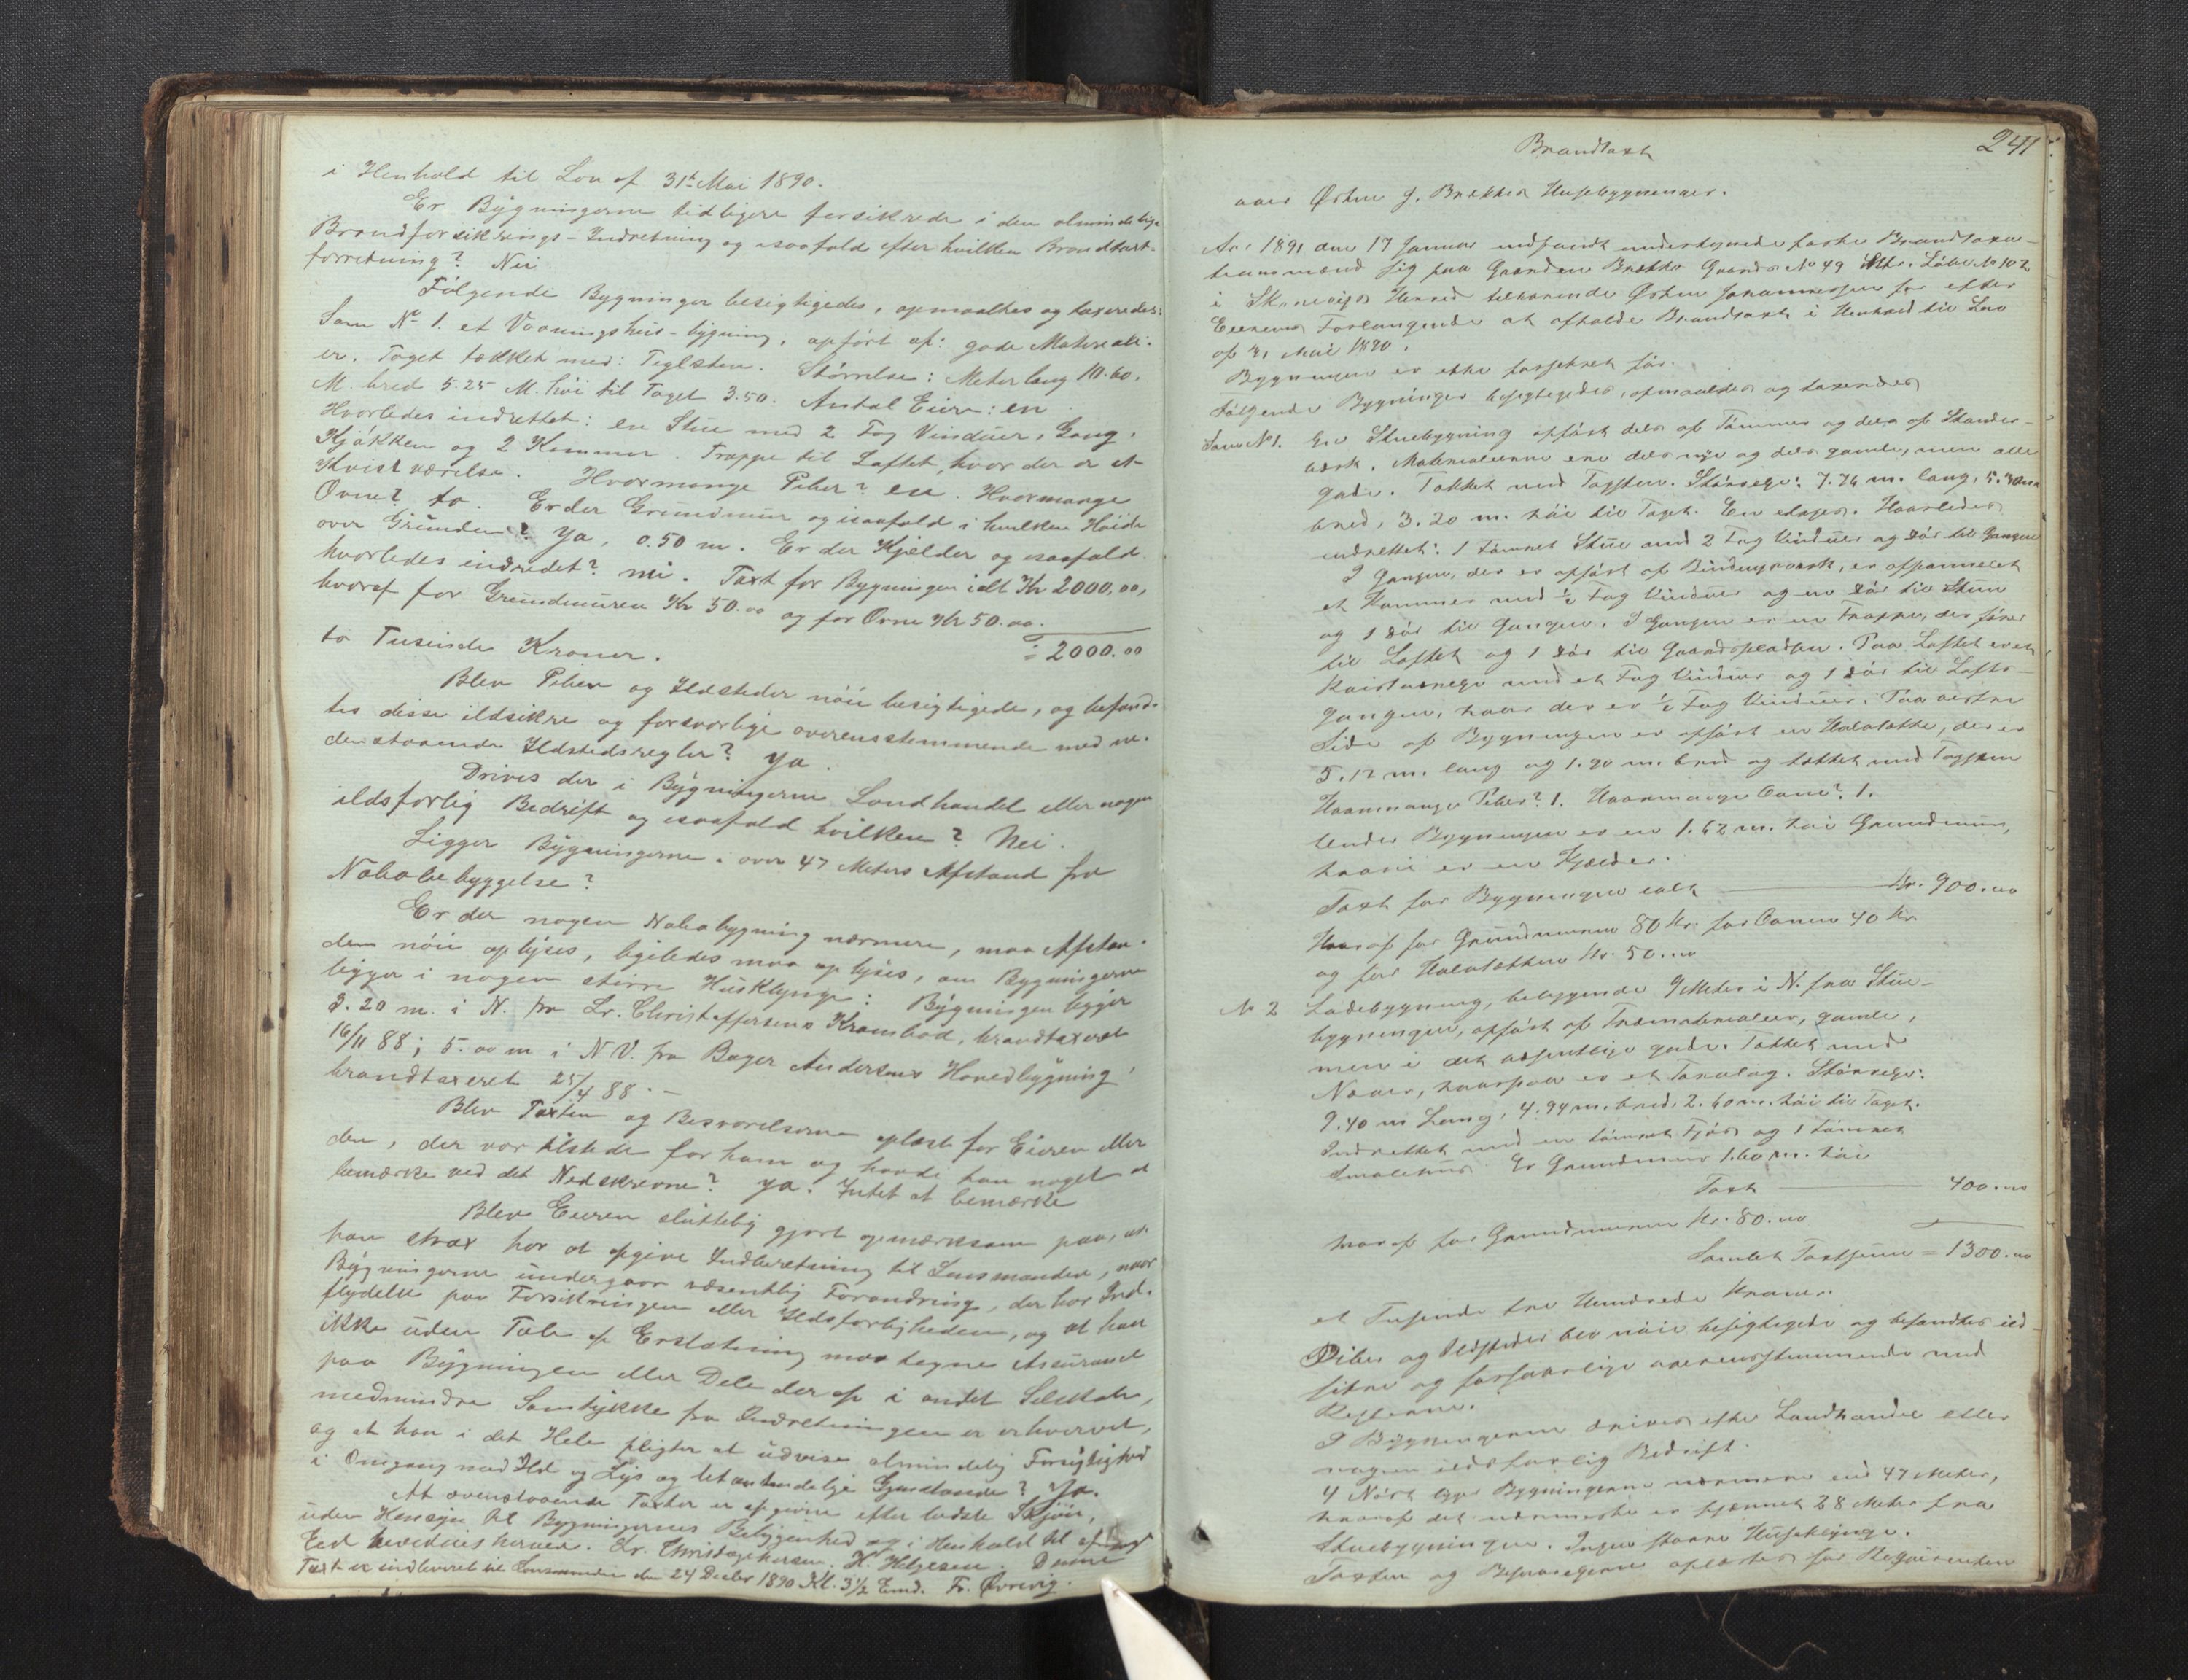 i Henhold til Lov af 31te Mai 1890.
Er Bygningerne tidligere forsikrede i den almindelige
Brandforsikrings-Indretning og isaafald efter hvilken Brandtaxt-
forretning? Nei
Følgende Bygninger besigtigedes, opmaaltes og taxeredes:
Som No 1. et Vaaningshus-bygning, opført af: gode Materiali-
er. Taget tækket med: Teglsten. Størrelse: Meter lang 10.60.
M. bred 5.25 M. høi til Taget 3.50. Antal Eiere: en
Hvorledes indrettet: en Stue med 2 Fag Vinduer, Gang,
Kjøkken og 2 Kammer. Trappe til Loftet, hvor der er et
Kvistværelse. Hvormange Piber? en. Hvormange
Ovne? to. Er der Grundmur og isaafald i hvilken Høide
over Grunden? Ja, 0.50 m. Er der Kjelder og isaafald
hvorledes indredet? nei. Taxt for Bygningen ialt Kr 2000,00,
hvoraf for Grundmuren Kr 50.00 og for Ovne Kr 50.00.
to Tusinde Kroner. = 2000.00
Blev Piber og Ildsteder nøie besigtigede, og befand-
tes disse ildsikre og forsvarlige overensstemmende med ne-
denstaaende Ildstedsregler? Ja.
Drives der i Bygningerne Landhandel eller nogen
ildsfarlig Bedrift og isaafald hvilken? Nei.
Ligger Bygningerne i over 47 Meters Afstand fra
Nabobebyggelse?
Er der nogen Nabobygning nærmere, maa Afstan-
den nøie oplyses, ligeledes maa oplyses, om Bygningerne
ligger i nogen større Husklynge: Bygningen ligger
3.20 m. i N. fra Lr. Christoffersens Krambod, brandtaxeret
16/11 88; 5.00 m i N V. fra Bager Andersens Hovedbygning,
brandtaxeret 25/4 88. -
Blev Taxten og Besvarelserne oplæst for Eieren eller
den, der var tilstede for ham og havde han noget at
bemærke ved det Nedskrevne? Ja. Intet at bemærke
Blev Eieren sluttelig gjort opmærksom paa, at
han strax har at opgive Indberetning til Lensmanden, naar
Bygningerne undergaar væsentlig Forandring, der har Ind-
flydelse paa Forsikringen eller Ildsfarligheden, og at han
ikke uden Tab af Erstatning maa tegne Assurance
paa Bygningen eller Dele deraf i andet Selskab,
medmindre Samtykke fra Indretningen er erhvervet,
og at han i det Hele pligter at udvise almindelig Forsigtighed
i Omgang med Ild og Lys og let antændelige Gjenstande? Ja.
At ovenstaaende Taxter er afgivne efter bedste Skjøn,
uden Hensyn til Bygningernes Beliggenhed og i Henhold til aflagt
Ed bevidnes herved. Lr. Christoffersen. H. Helgesen. Denne
Taxt er indleveret til Lensmanden den 24 Decbr 1890 Kl. 3½ Emd. Fr. Øvrevig.
Brandtaxt 241
over Østen J. Brekkes Husebygninger.
Aar 1891 den 17 Januar indfandt undertegnede faste Brandtaxa-
tionsmænd sig paa Gaarden Brekke Gaards No 49 Løbe No 102
i Herred tilhørende Østen Johannessen for efter
Eierens Forlangende at afholde Brandtaxt i Henhold til Lov
af 31 Mai 1890.
Bygningen er ikke forsikret før.
Følgende Bygninger besigtigedes, opmaaltes og taxeredes
Som No 1. En Stuebygning opført dels af Tømmer og dels af Stander-
værk. Materialerne ere dels nye og dels gamle, men alle
gode. Tækket med Tagsten. Størrelse: 7.76 m. lang, 5.30 m
bred, 3.20 m. høi til Taget. En etages. Hvorledes
indrettet: 1 tømret Stue med 2 Fag Vinduer og Dør til Gangen
I Gangen, der er opført af Bindingsværk, er afpannelet
et Kammer med ½ Fag Vinduer og en Dør til Stuen
og 1 Dør til Gangen. I Gangen er en Trappe, der fører
til Loftet og 1 Dør til Gaardspladsen. Paa Loftet er et
Kvistværelse med et Fag Vinduer og 1 Dør til Lofts-
gangen, hvor der er ½ Fag Vinduer. Paa vestre
Side af Bygningen er opført en Halvtække, der er
5.12 m. lang og 1.90 m. bred og tækket med Tagsten
Hvormange Piber? 1. Hvormange Ovne? 1.
Under Bygningen er en 1.62 m. høi Grundmur,
hvori er en Kjælder.
Taxt for Bygningen ialt Kr. 900.00
Hvoraf for Grundmuren 80 Kr. for Ovnen 40 Kr.
og for Halvtækken Kr. 50.00
No 2 Ladebygning, beliggende 9 Meter i N. fra Stue-
bygningen, opført af Træmaterialier, gamle,
men i det væsentlige gode. Tækket med
Næver, hvorpaa er et Torvlag. Størrelse:
9.40 m Lang, 4.94 m. bred, 2.60 m. høi til Taget.
Indrettet med en tømret Fjøs og 1 tømret
Smalehus. Er Grundmur 1.60 m. høi
Taxt 400.00
hvoraf for Grundmuren Kr. 80.00
Samlet Taxtsum = 1300.00
et Tusinde tre Hundrede Kroner.
Piber og Ildsteder blev nøie besigtigede og befandtes ild-
sikre og forsvarlige overensstemmende med
Reglerne.
I Bygningerne drives ikke Landhandel eller
nogen ildsfarlig Bedrift.
4 Nøst ligger Bygningerne nærmere end 47 Meter,
hvoraf det nærmeste er fjernet 28 Meter fra
Stuebygningen. Ingen større Huseklynge.
Taxten og Besvarelserne oplæstes for Rekvirenten